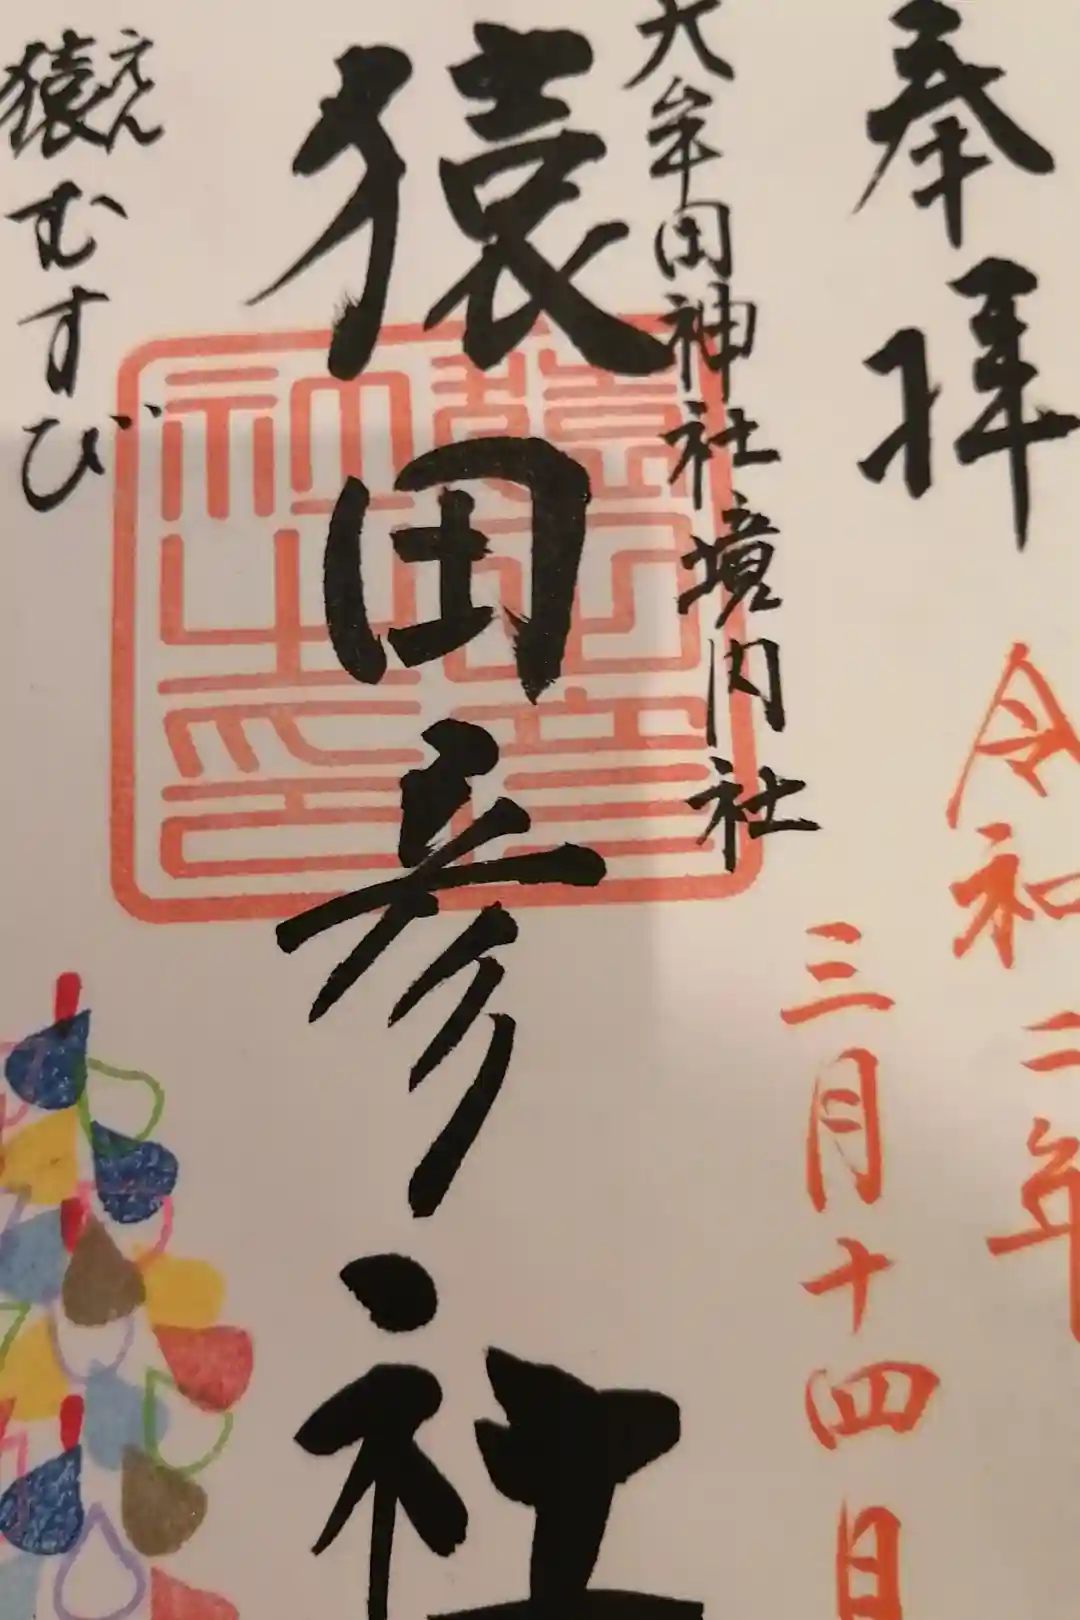 奉拝
令和二年
三月十四日
大牟田神社境内社
猿田彦社
猿田彦社之印
えん
猿むすび